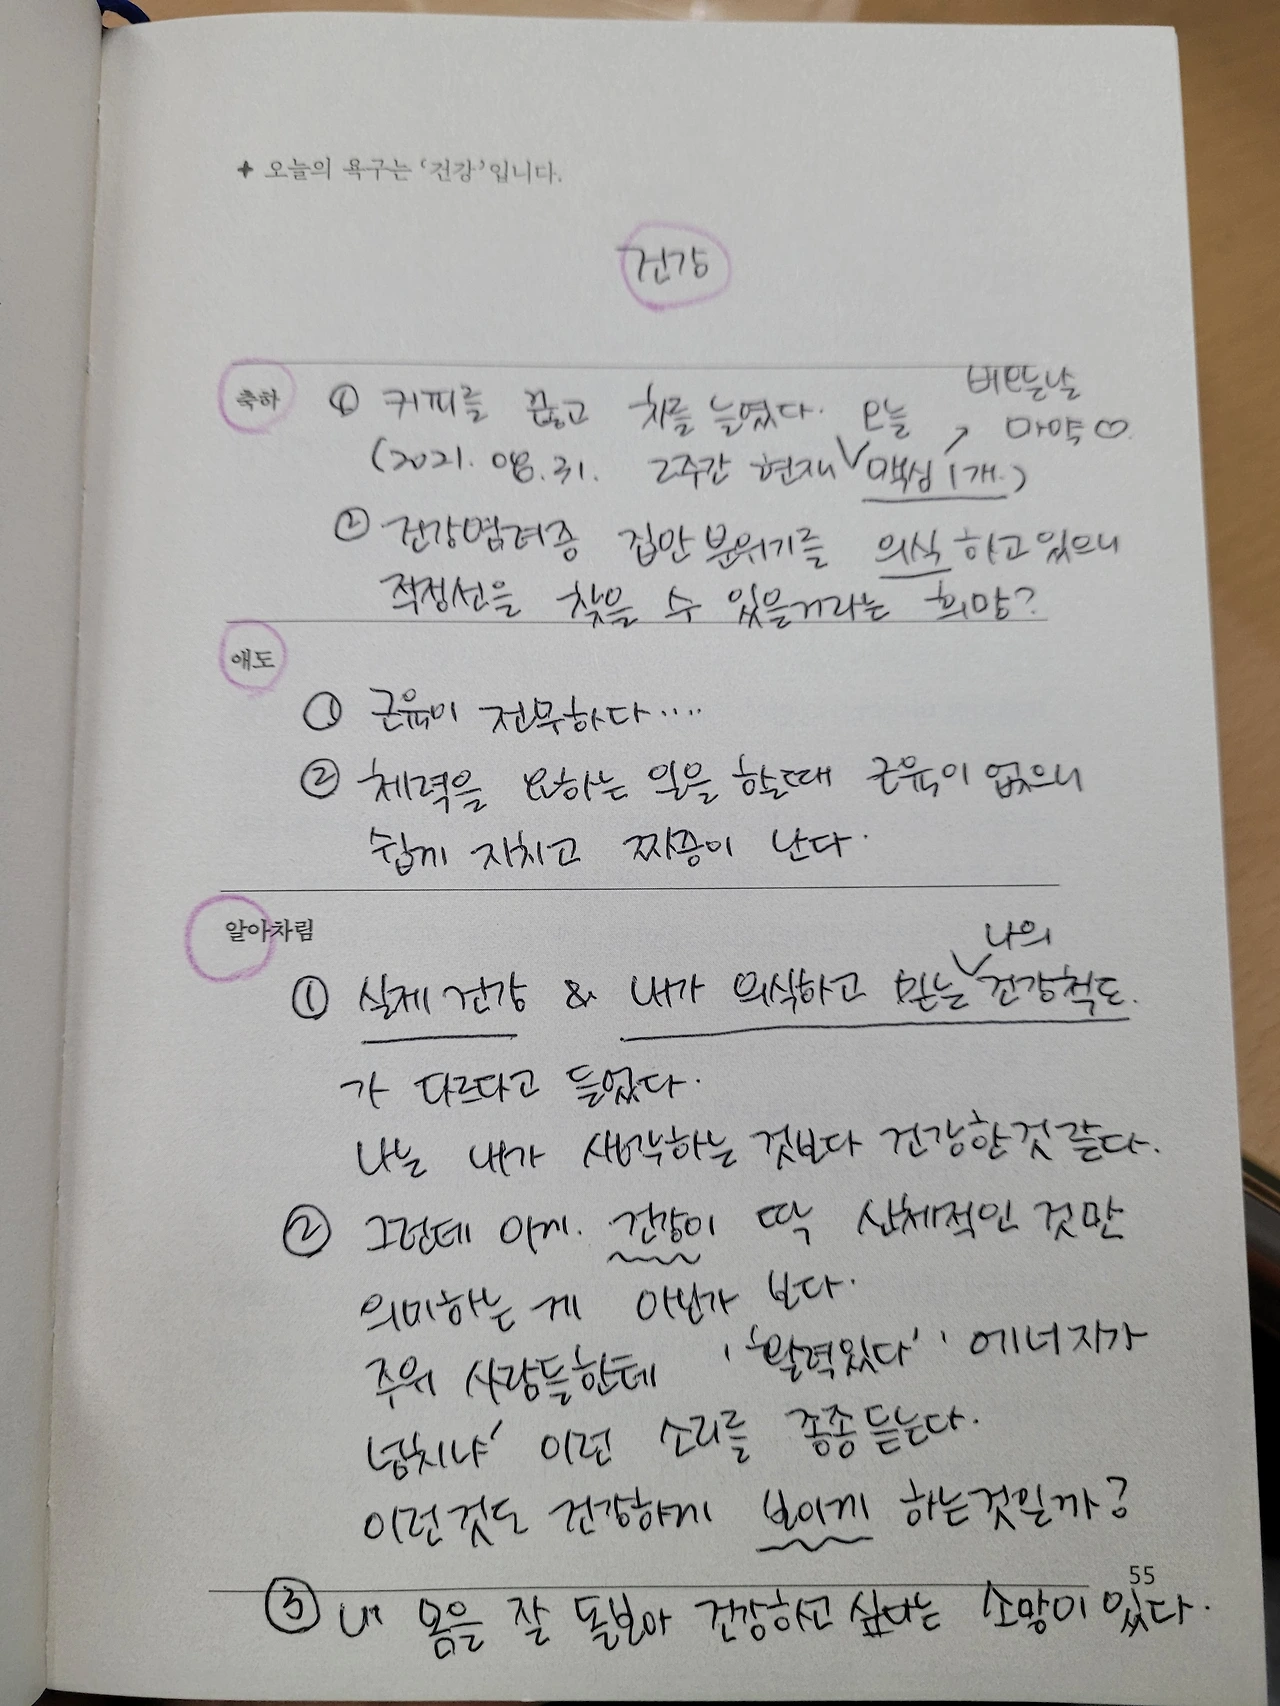 ✦ 오늘의 욕구는 '건강'입니다.
건강
축하 ① 커피를 끊고 차를 늘였다. 오늘
(2021. 08. 31. 2주간 현재 맥심 1개.)
바쁜날
마약♡
② 건강염려증 집안 분위기를 의식하고 있으니
적정선을 찾을 수 있을거라는 희망?
애도
① 근육이 전무하다....
② 체력을 요하는 일을 할때 근육이 없으니
쉽게 지치고 짜증이 난다.
알아차림
나의
① 실제 건강 & 내가 의식하고 믿는 건강척도.
가 다르다고 들었다.
나는 내가 생각하는 것보다 건강한것 같다.
② 그런데 이게. 건강이 딱 신체적인 것만
의미하는 게 아닌가 보다.
주위 사람들한테 '활력있다' '에너지가
넘치냐' 이런 소리를 종종 듣는다.
이런것도 건강하게 보이게 하는것일까?
55
③ 내 몸을 잘 돌보아 건강하고 싶다는 소망이 있다.